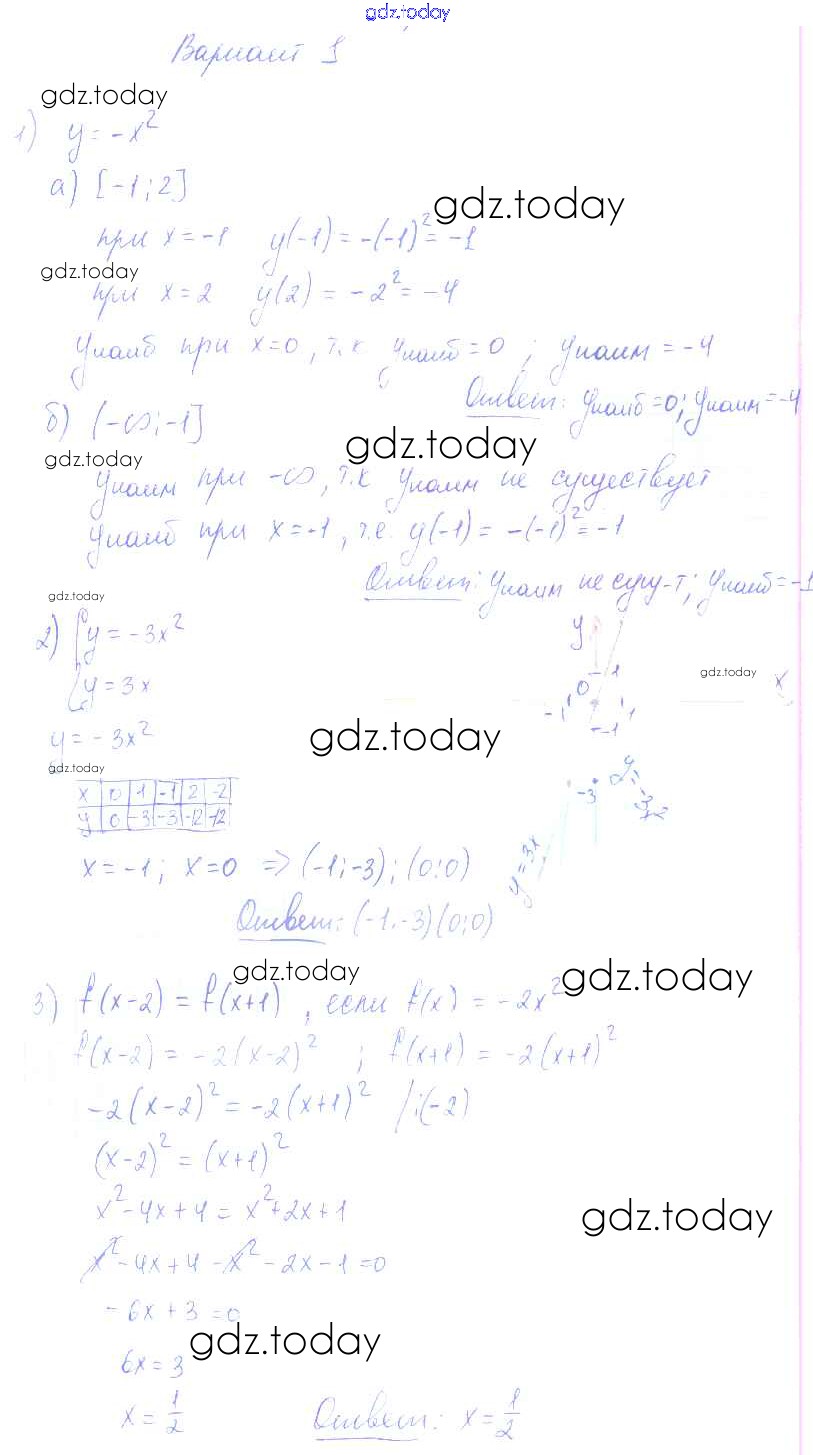 gdz.today
Вариант 1
gdz.today
1) y = -x²
а) [-1; 2]
gdz.today
при x = -1 y(-1) = -(-1)² = -1
gdz.today
при x = 2 y(2) = -2² = -4
yнаиб при x=0, т.к yнаиб = 0 ; yнаим = -4
Ответ: yнаиб = 0; yнаим = -4
б) (-∞; -1]
gdz.today
gdz.today
yнаим при -∞, т.к yнаим не существует
yнаиб при x = -1, т.е. y(-1) = -(-1)² = -1
Ответ: yнаим не сущ-т; yнаиб = -1
gdz.today
2) { y = -3x²
y = 3x
y
gdz.today
x
1
0
-1
1
-1
y = -3x²
gdz.today
gdz.today
x 0 1 -1 2 -2
y 0 -3 -3 -12 -12
-3
y = 3x
x = -1; x = 0 => (-1; -3); (0; 0)
Ответ: (-1. -3) (0; 0)
gdz.today
gdz.today
3) f(x-2) = f(x+1), если f(x) = -2x²
f(x-2) = -2(x-2)² ; f(x+1) = -2(x+1)²
-2(x-2)² = -2(x+1)² /:(-2)
(x-2)² = (x+1)²
x² - 4x + 4 = x² + 2x + 1
gdz.today
x² - 4x + 4 - x² - 2x - 1 = 0
- 6x + 3 = 0
gdz.today
6x = 3
x = 1/2 Ответ: x = 1/2